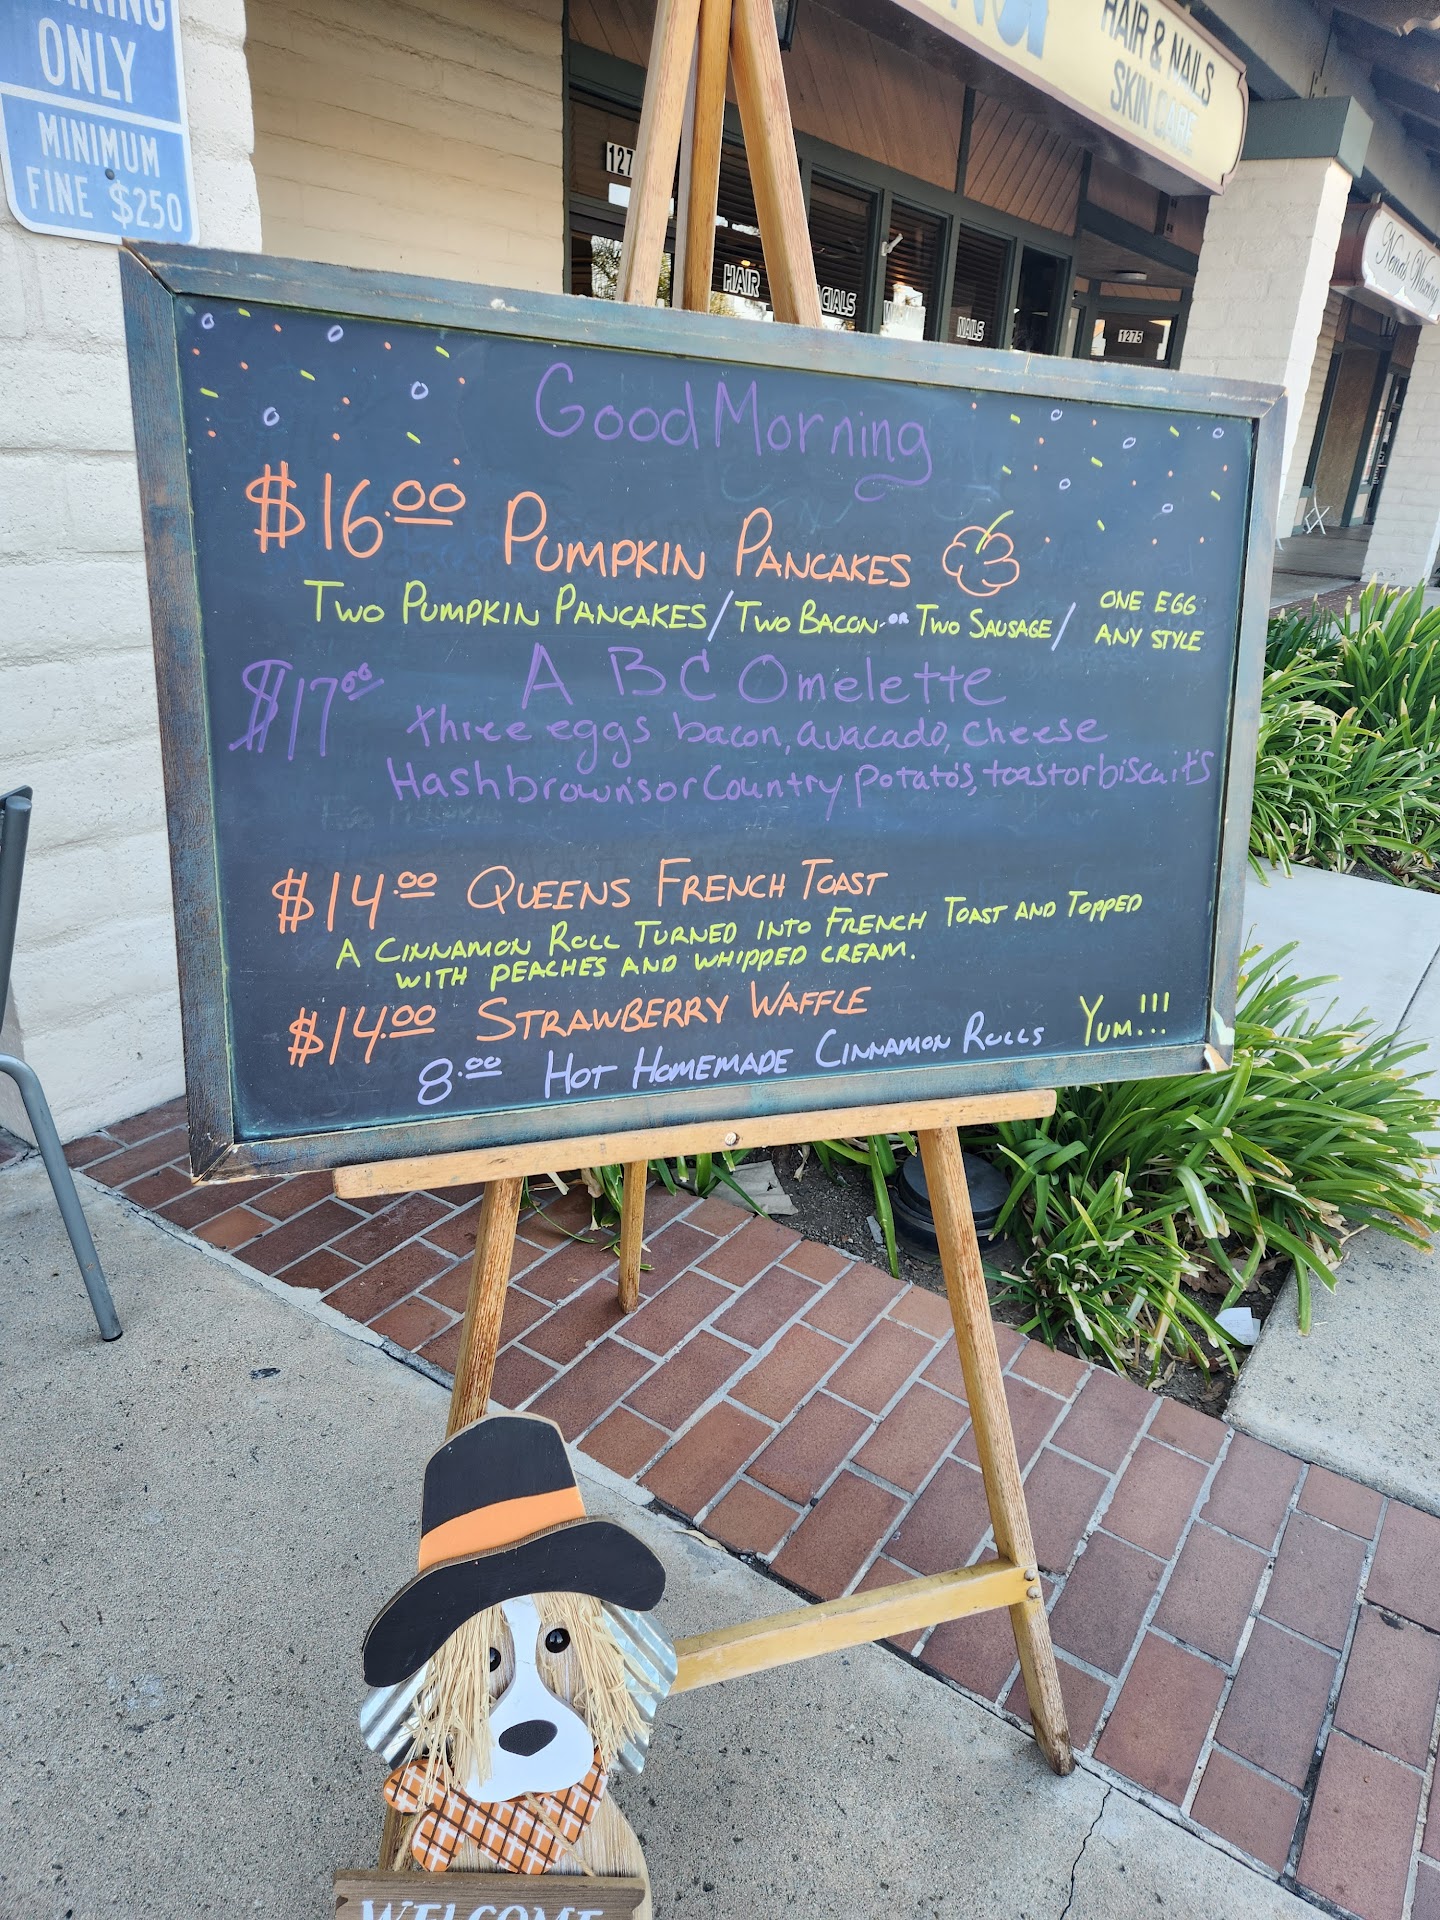 ONLY
MINIMUM
FINE $250
HAIR & NAILS
SKIN CARE
HAIR
NAILS
1275
Good Morning
$16.00 PUMPKIN PANCAKES
TWO PUMPKIN PANCAKES/TWO BACON OR TWO SAUSAGE/ ONE EGG
ANY STYLE
$17.00 A B C Omelette
three eggs bacon, avacado, cheese
Hashbrown's or Country potato's, toast or biscuit's
$14.00 QUEENS FRENCH TOAST
A CINNAMON ROLL TURNED INTO FRENCH TOAST AND TOPPED
WITH PEACHES AND WHIPPED CREAM.
$14.00 STRAWBERRY WAFFLE
8.00 HOT HOMEMADE CINNAMON ROLLS YUM!!!
WELCOME